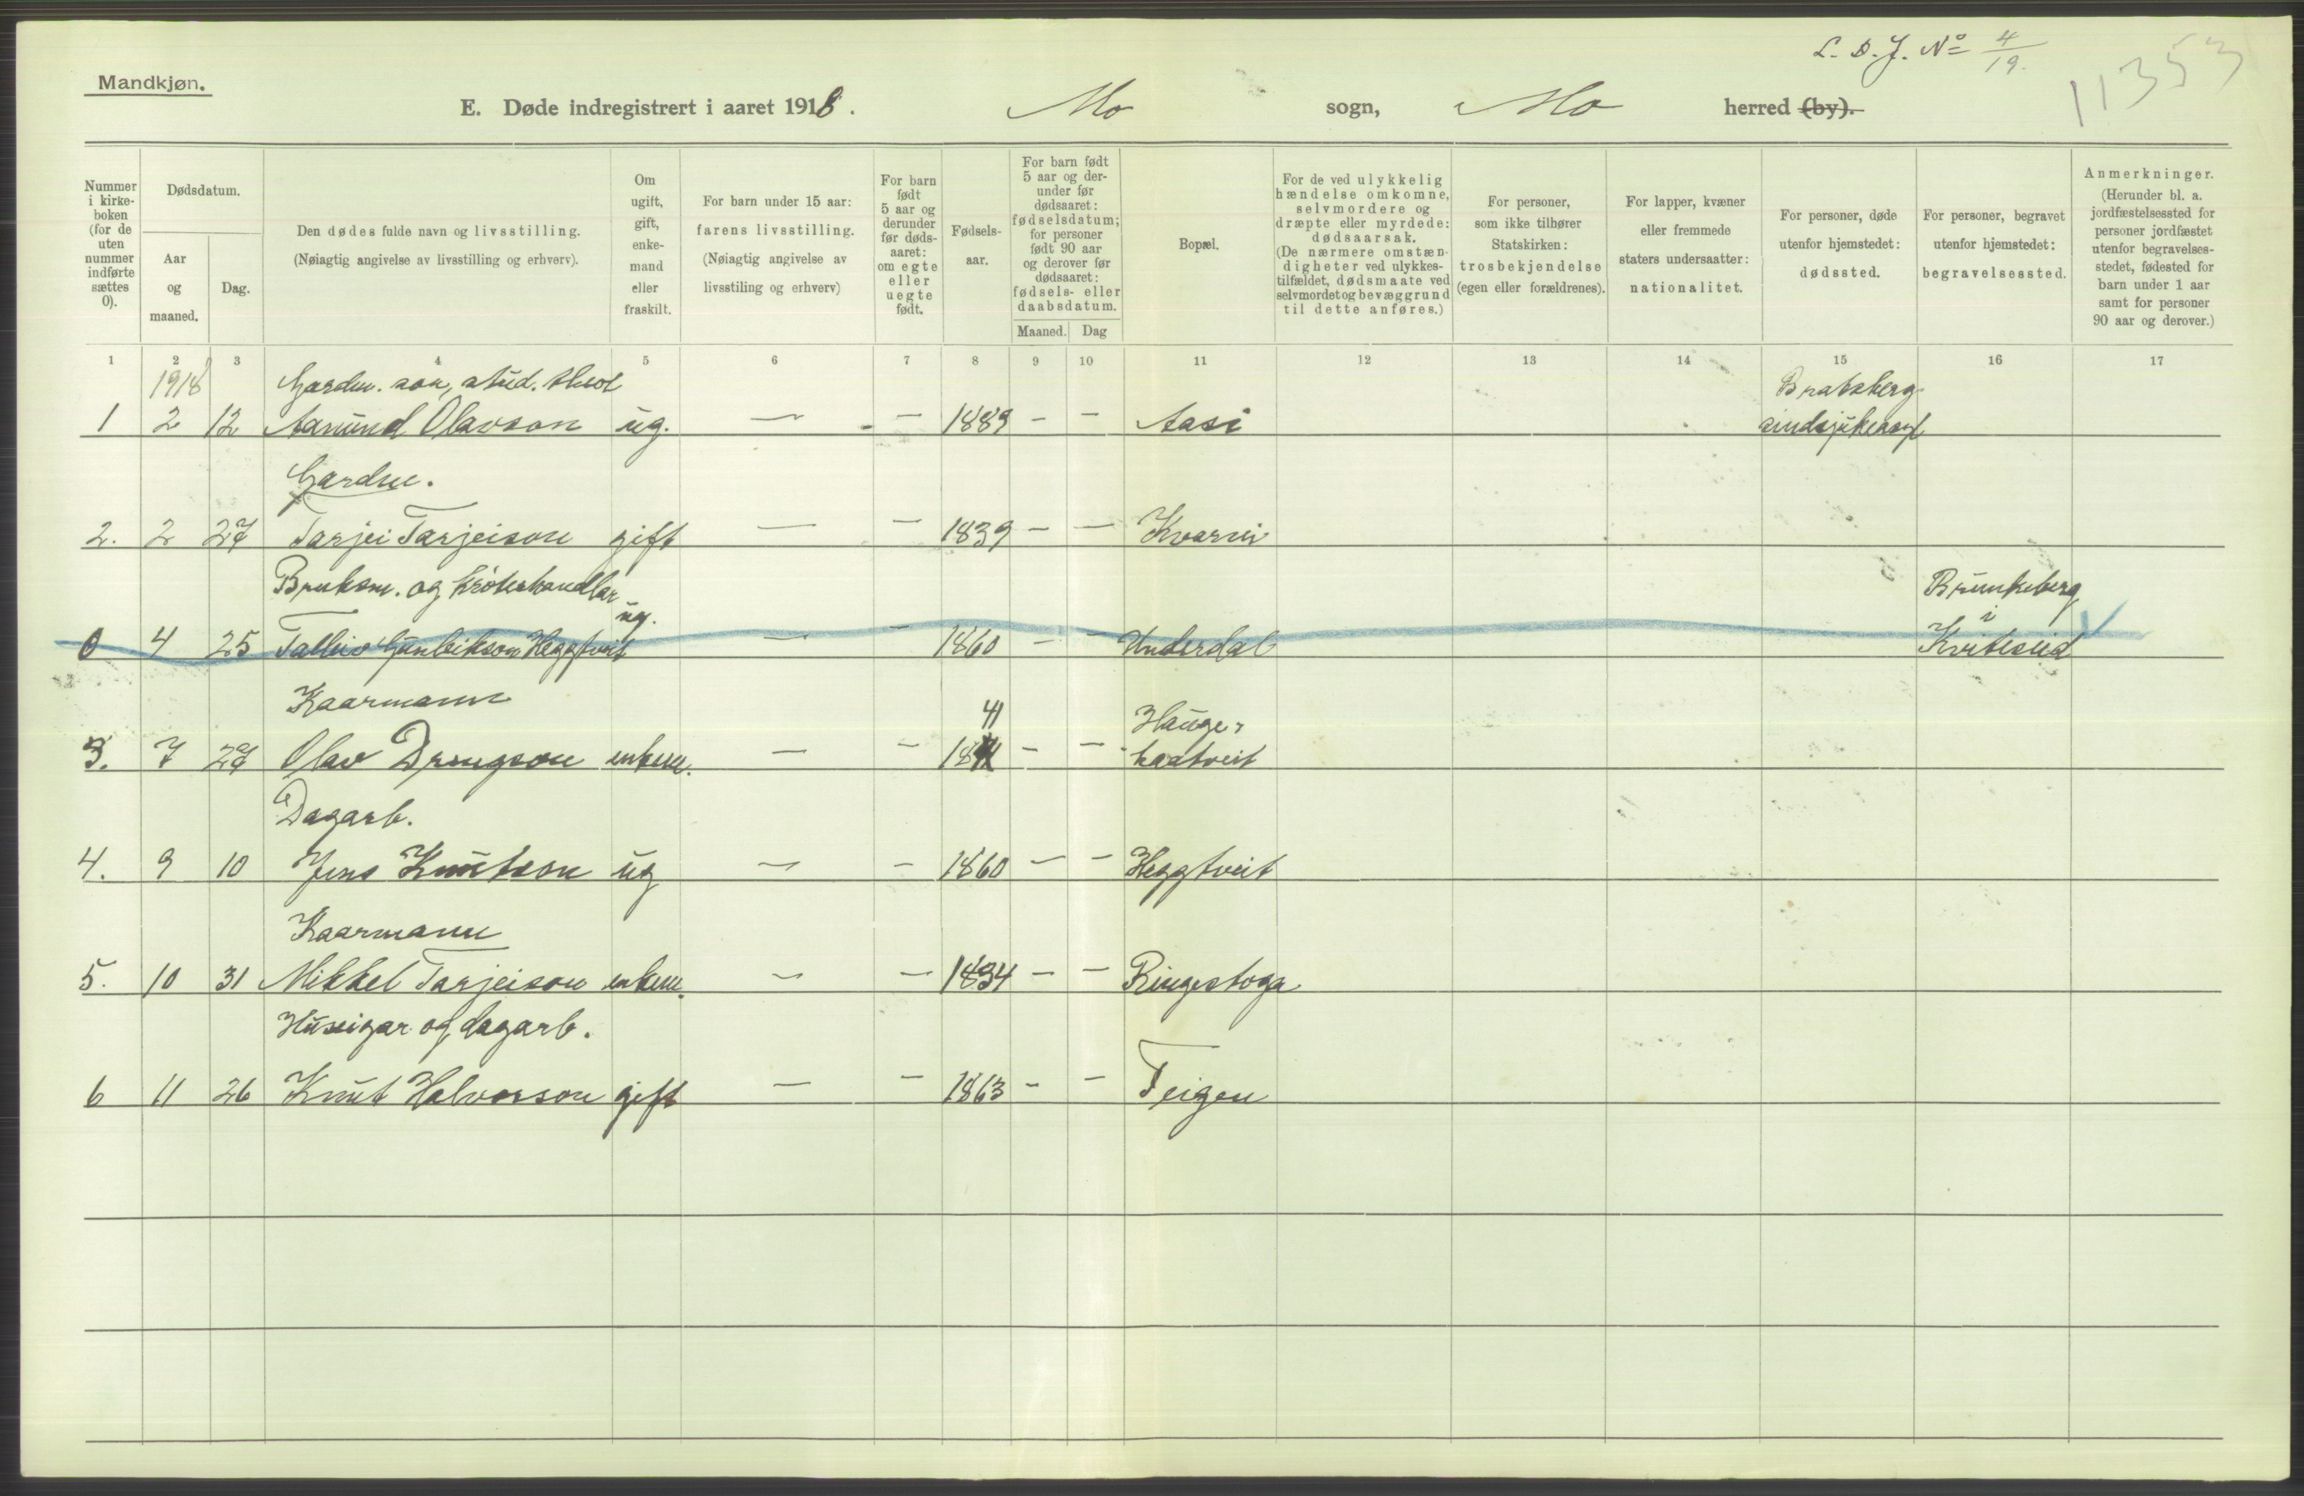 L. D. J. No 4/19.
11353
Mandkjøn.
E. Døde indregistrert i aaret 1918. Mo sogn, Mo herred (by).
Nummer i kirkeboken (for de uten nummer indførte sættes 0).
Dødsdatum.
Aar og maaned.
Dag.
Den dødes fulde navn og livsstilling.
(Nøiagtig angivelse av livsstilling og erhverv).
Om ugift, gift, enkemand eller fraskilt.
For barn under 15 aar: farens livsstilling.
(Nøiagtig angivelse av livsstiling og erhverv)
For barn født 5 aar og derunder før dødsaaret: om egte eller uegte født.
Fødselsaar.
For barn født 5 aar og derunder før dødsaaret: fødselsdatum; for personer født 90 aar og derover før dødsaaret: fødsels- eller daabsdatum.
Maaned. Dag
Bopæl.
For de ved ulykkelig hændelse omkomne, selvmordere og dræpte eller myrdede: dødsaarsak.
(De nærmere omstændigheter ved ulykkestilfældet, dødsmaate ved selvmordet og bevæggrund til dette anføres.)
For personer, som ikke tilhører Statskirken: trosbekjendelse (egen eller forældrenes).
For lapper, kvæner eller fremmede staters undersaatter: nationalitet.
For personer, døde utenfor hjemstedet: dødssted.
For personer, begravet utenfor hjemstedet: begravelsessted.
Anmerkninger.
(Herunder bl. a. jordfæstelsessted for personer jordfæstet utenfor begravelsesstedet, fødested for barn under 1 aar samt for personer 90 aar og derover.)
1 2 3 4 5 6 7 8 9 10 11 12 13 14 15 16 17
1918 Gardm. son, stud. theol Bratsberg
1 2 12 Aamund Olavson ug. — - 1889 - - Aasi sindsjukeasyl
Gardm.
2. 2 27 Tarjei Tarjeison gift — - 1839 - - Kvarvi
Bruksm. og krøterhandlar ug. Brunkeberg
i
0 4 25 Talleiv Gunleikson Heggtveit — - 1860 - - Underdal Kviteseid
Kaarmann 41 Hauge-
3. 7 27 Olav Drengson enkem. — - 18 - - kaatveit
Dagarb.
4. 9 10 Jens Knutson ug — - 1860 - - Heggtveit
Kaarmann
5. 10 31 Mikkel Tarjeison enkem. — - 1834 - - Ringestoga
Huseigar og dagarb.
6 11 26 Knut Halvorson gift — - 1863 - - Teigen